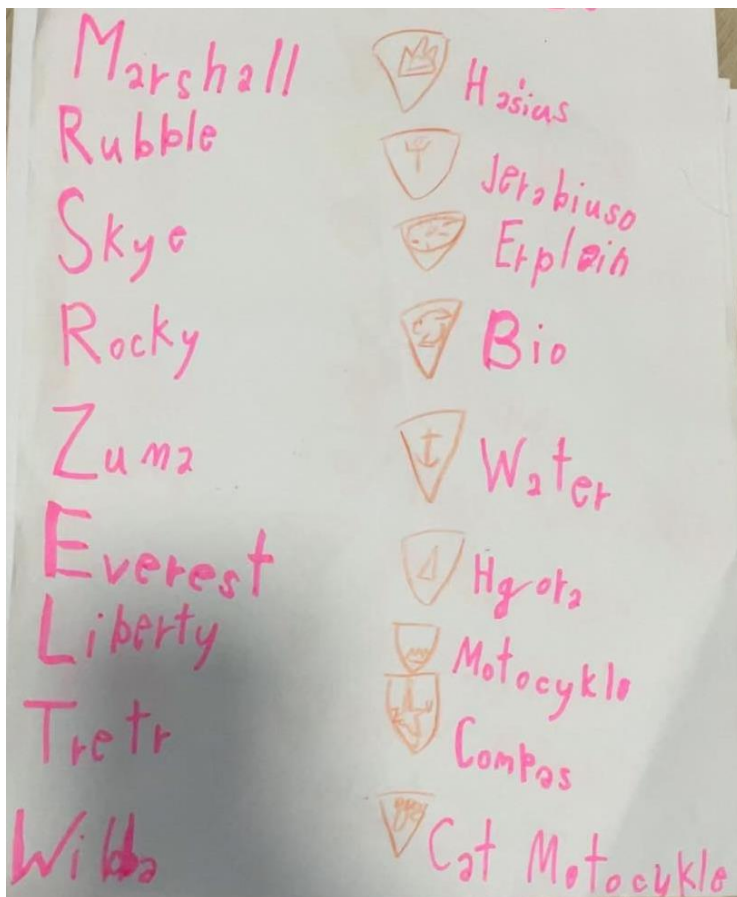 Marshall Hasius
Rubble Jerabiuso
Skye Erplain
Rocky Bio
Zuma Water
Everest Hgota
Liberty Motocykle
Tretr Compas
Cat Motocykle